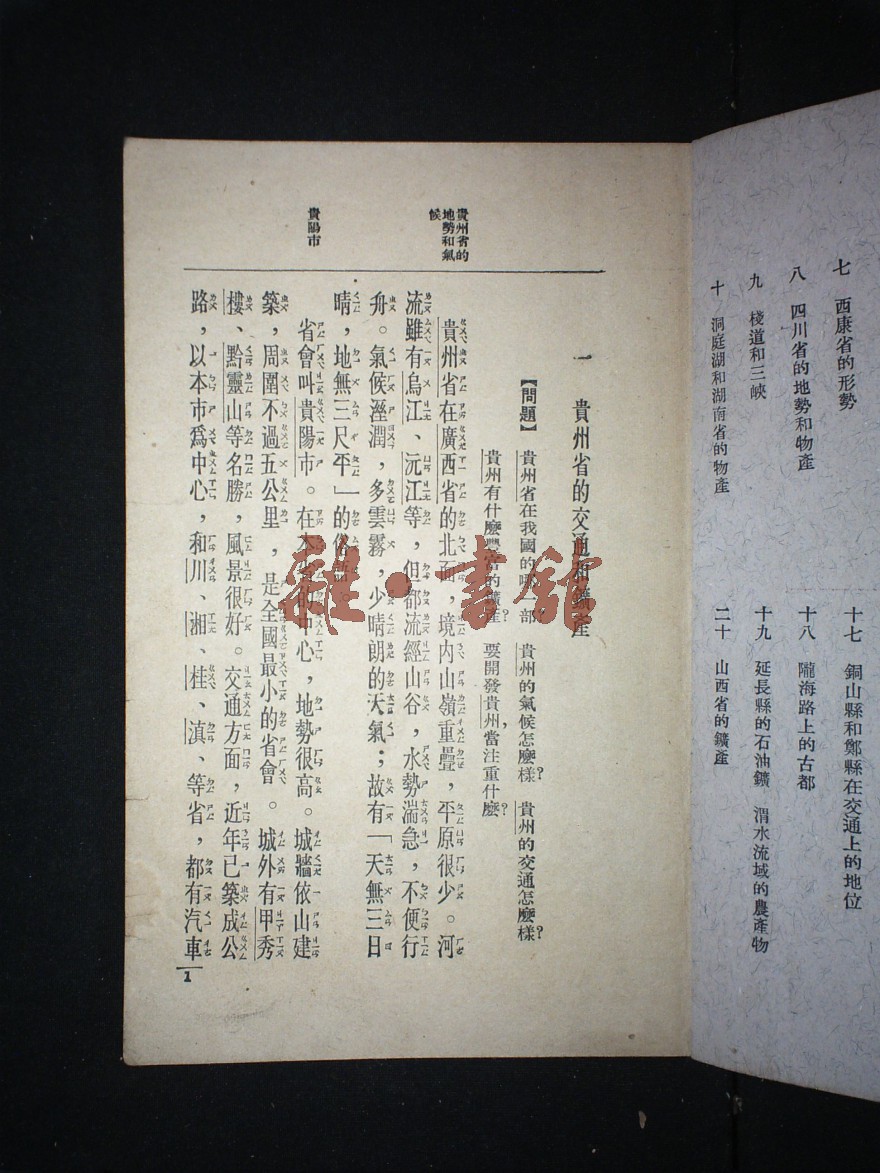 七　西康省的形勢
八　四川省的地勢和物產
九　棧道和三峽
十　洞庭湖和湖南省的物產
十七　銅山縣和鄭縣在交通上的地位
十八　隴海路上的古都
十九　延長縣的石油鑛　渭水流域的農產物
二十　山西省的鑛產
一　貴州省的交通和鑛產
【問題】　貴州省在我國的哪一部?　貴州的氣候怎麼樣?　貴州的交通怎麼樣?
貴州有什麼豐富的鑛產?　要開發貴州,當注重什麼?
貴州省的
地勢和氣
候
貴州省在廣西省的北面,境內山嶺重疊,平原很少。河
流雖有烏江、沅江等,但都流經山谷,水勢湍急,不便行
舟。氣候溼潤,多雲霧,少晴朗的天氣;故有「天無三日
晴,地無三尺平」的俗語。
貴陽市
省會叫貴陽市。在本省的中心,地勢很高。城牆依山建
築,周圍不過五公里,是全國最小的省會。城外有甲秀
樓、黔靈山等名勝,風景很好。交通方面,近年已築成公
路,以本市爲中心,和川、湘、桂、滇、等省,都有汽車
1
雜·書館